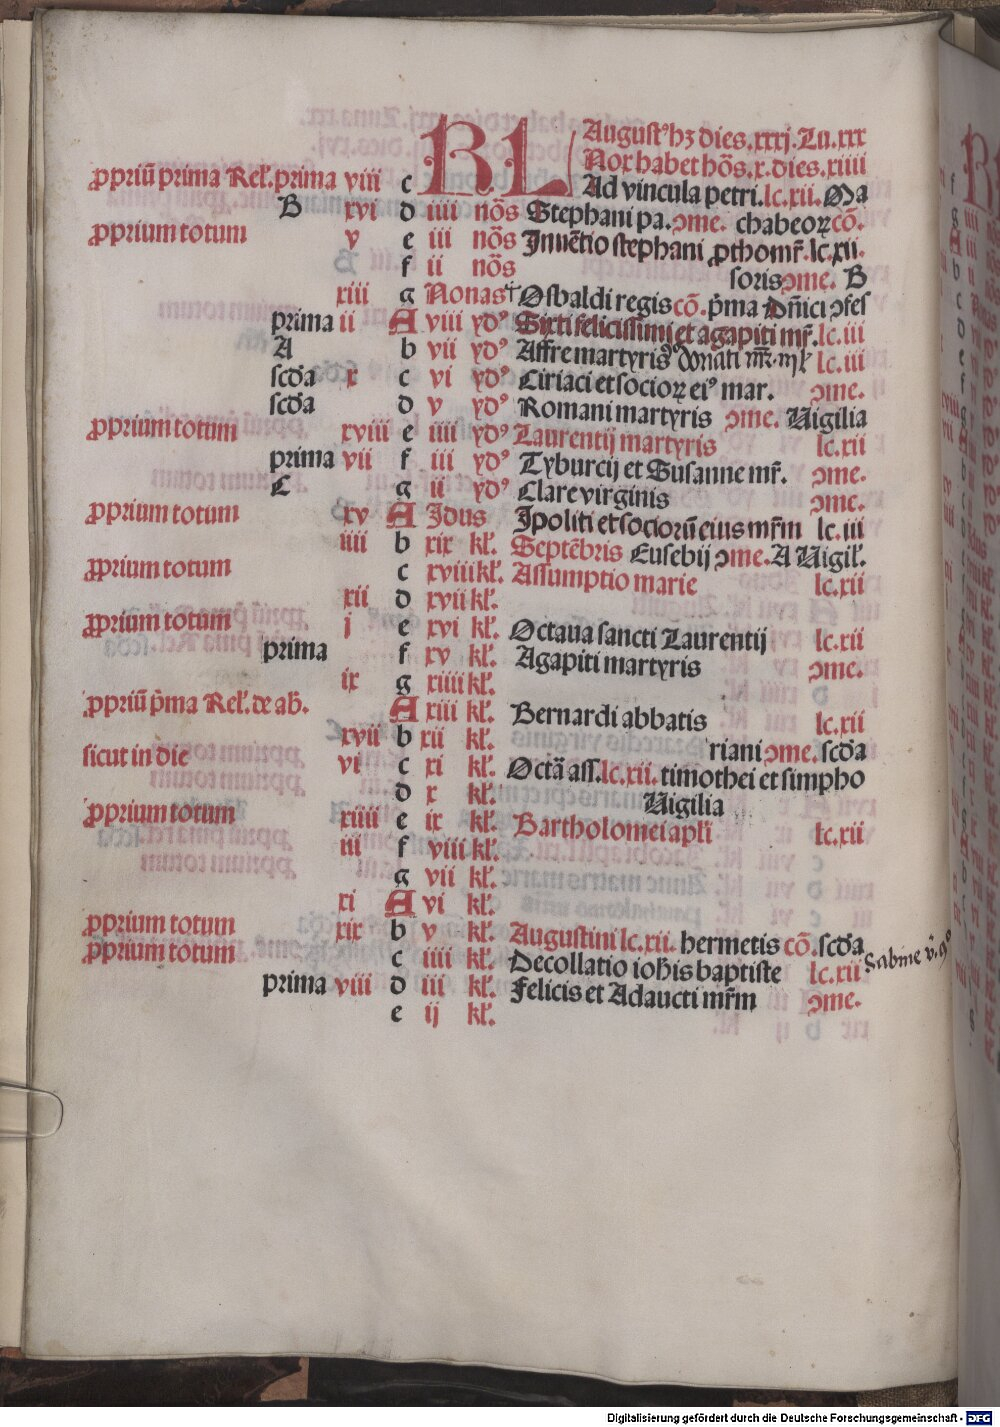 KL August⁹ hꝫ dies.xxxj.Lu.xxx
Nox habet hōs.x.dies.xiiii
ꝓpriū prima Rel̕.prima viii c Ad vincula petri.lc.xii.Ma
B xvi d iiii nōs Stephani pa.ↄme. chabeoꝝ cō.
ꝓprium totum v e iii nōs Jnuētio stephani ꝓthomr̄.lc.xii.
f ii nōs soris ↄme. B
xiii g Nonas † Osbaldi regis cō. p̄ma Dn̄ici ↄfes
prima ii A viii ydꝰ Sixti felicissimi et agapiti mr̄.lc.iii
A b vii ydꝰ Affre martyris Donati lc.iii
scd̄a x c vi ydꝰ Ciriaci et socioꝝ eiꝰ mar. ↄme.
scd̄a d v ydꝰ Romani martyris ↄme. Uigilia
ꝓprium totum xviii e iiii ydꝰ Laurentij martyris lc.xii
prima vii f iii ydꝰ Tyburcij et Susanne mr̄. ↄme.
C g ii ydꝰ Clare virginis ↄme.
ꝓprium totum xv A Jdus Jpoliti et sociorū eius mr̄m lc.iii
iiii b xix kl̕. Septēbris Eusebij ↄme. A Uigil̕.
ꝓprium totum c xviii kl̕. Assumptio marie lc.xii
xii d xvii kl̕.
ꝓprium totum j e xvi kl̕. Octaua sancti Laurentij lc.xii
prima f xv kl̕. Agapiti martyris ↄme.
ix g xiiii kl̕.
ꝓpriū p̄ma Rel̕. de ab̄. A xiii kl̕. Bernardi abbatis lc.xii
xvii b xii kl̕. riani ↄme. scd̄a
sicut in die vi c xi kl̕. Octā ass.lc.xii. timothei et simpho
d x kl̕. Uigilia
ꝓprium totum xiiii e ix kl̕. Bartholomei apl̄i lc.xii
iii f viii kl̕.
g vii kl̕.
xi A vi kl̕.
ꝓprium totum xix b v kl̕. Augustini lc.xii. hermetis cō. scd̄a
ꝓprium totum c iiii kl̕. Decollatio ioh̄is baptiste lc.xii Sabine v̄.
prima viii d iii kl̕. Felicis et Adaucti mr̄m ↄme.
e ij kl̕.
Digitalisierung gefördert durch die Deutsche Forschungsgemeinschaft - DFG